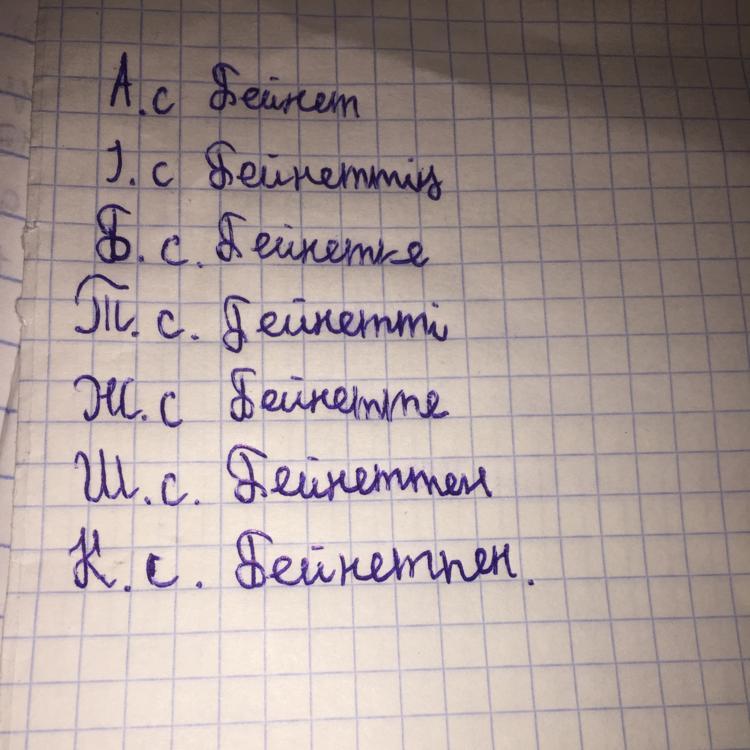 А.с Бейнет
І.с Бейнеттің
Б.с. Бейнетке
Т.с. Бейнетті
Ж.с Бейнетте
Ш.с. Бейнеттен
К.с. Бейнетпен.